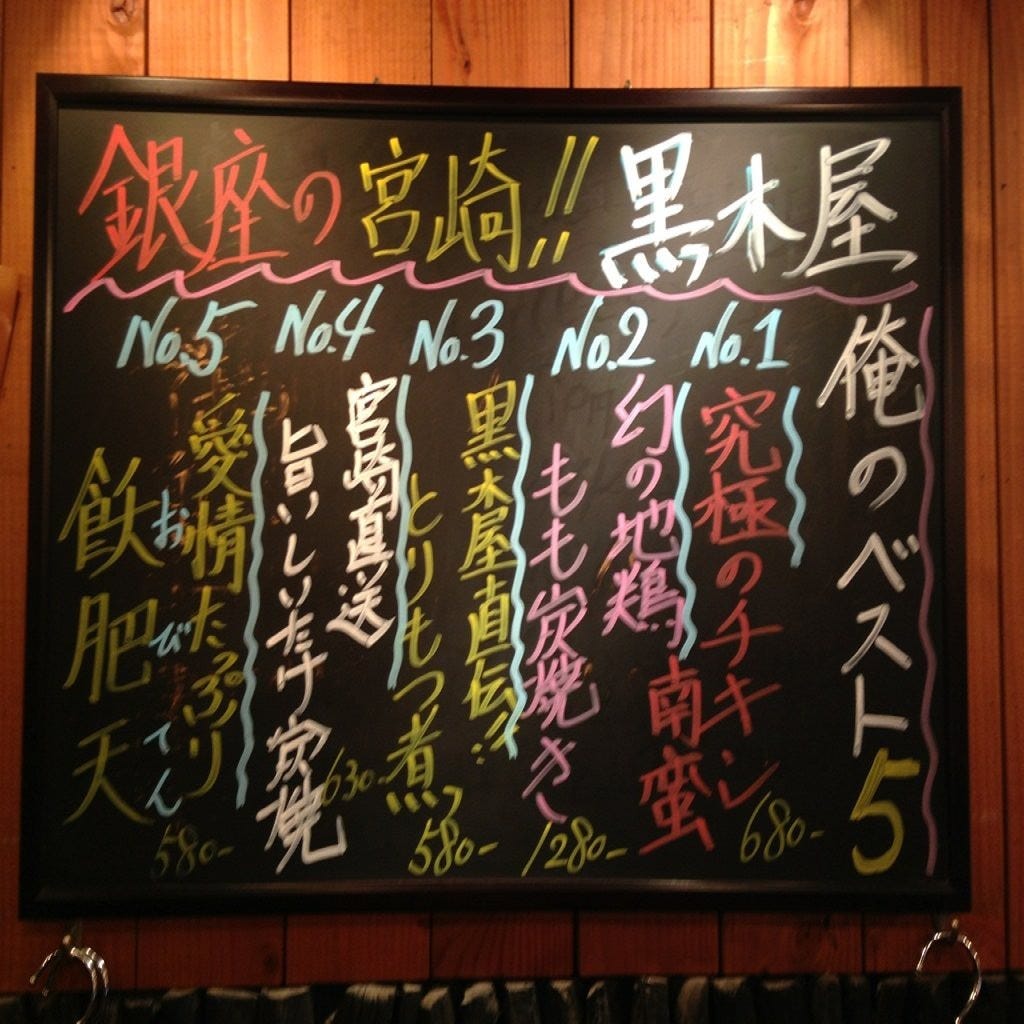 銀座の宮崎!! 黒木屋
俺のベスト5
No.1
究極のチキン
南蛮
680-
No.2
幻の地鶏
もも炭焼き
1280-
No.3
黒木屋直伝!!
とりもつ煮
580-
No.4
宮崎直送
旨いしいたけ炭焼
630-
No.5
愛情たっぷり
おびてん
飫肥天
580-